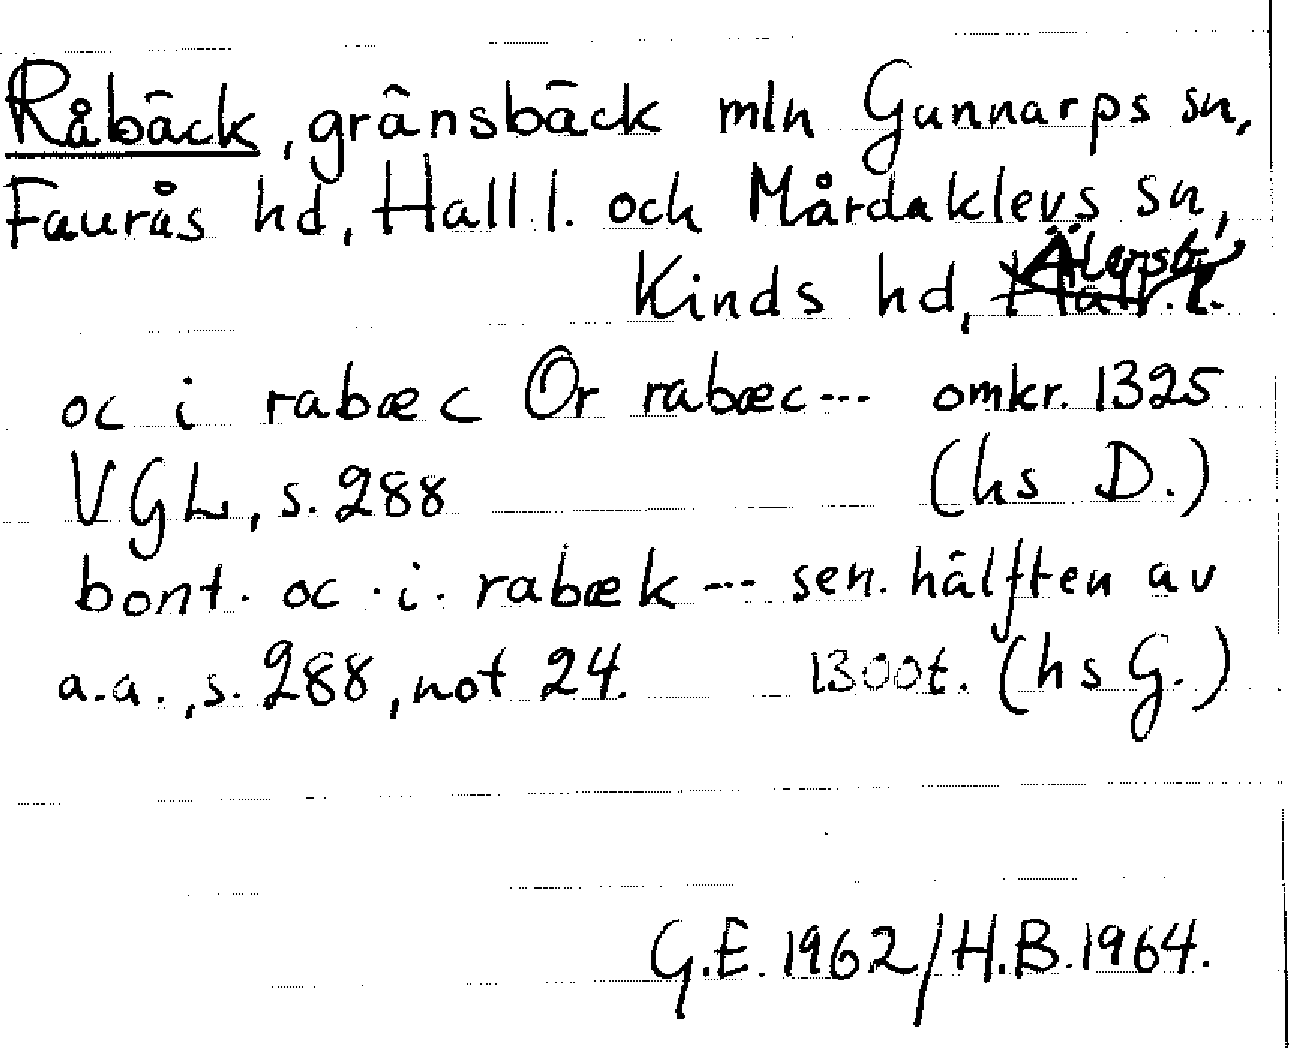 Råbäck, gränsbäck mln Gunnarps sn,
Faurås hd, Hall.l. och Mårdaklevs sn,
Kinds hd, Älvsb. l.
oc i rabæc Or rabæc--- omkr. 1325
VGL, s. 288 (hs D.)
bont. oc . i. rabæk --- sen. hälften av
a.a., s. 288, not 24. 1300t. (hs G.)
G.E. 1962/H.B. 1964.